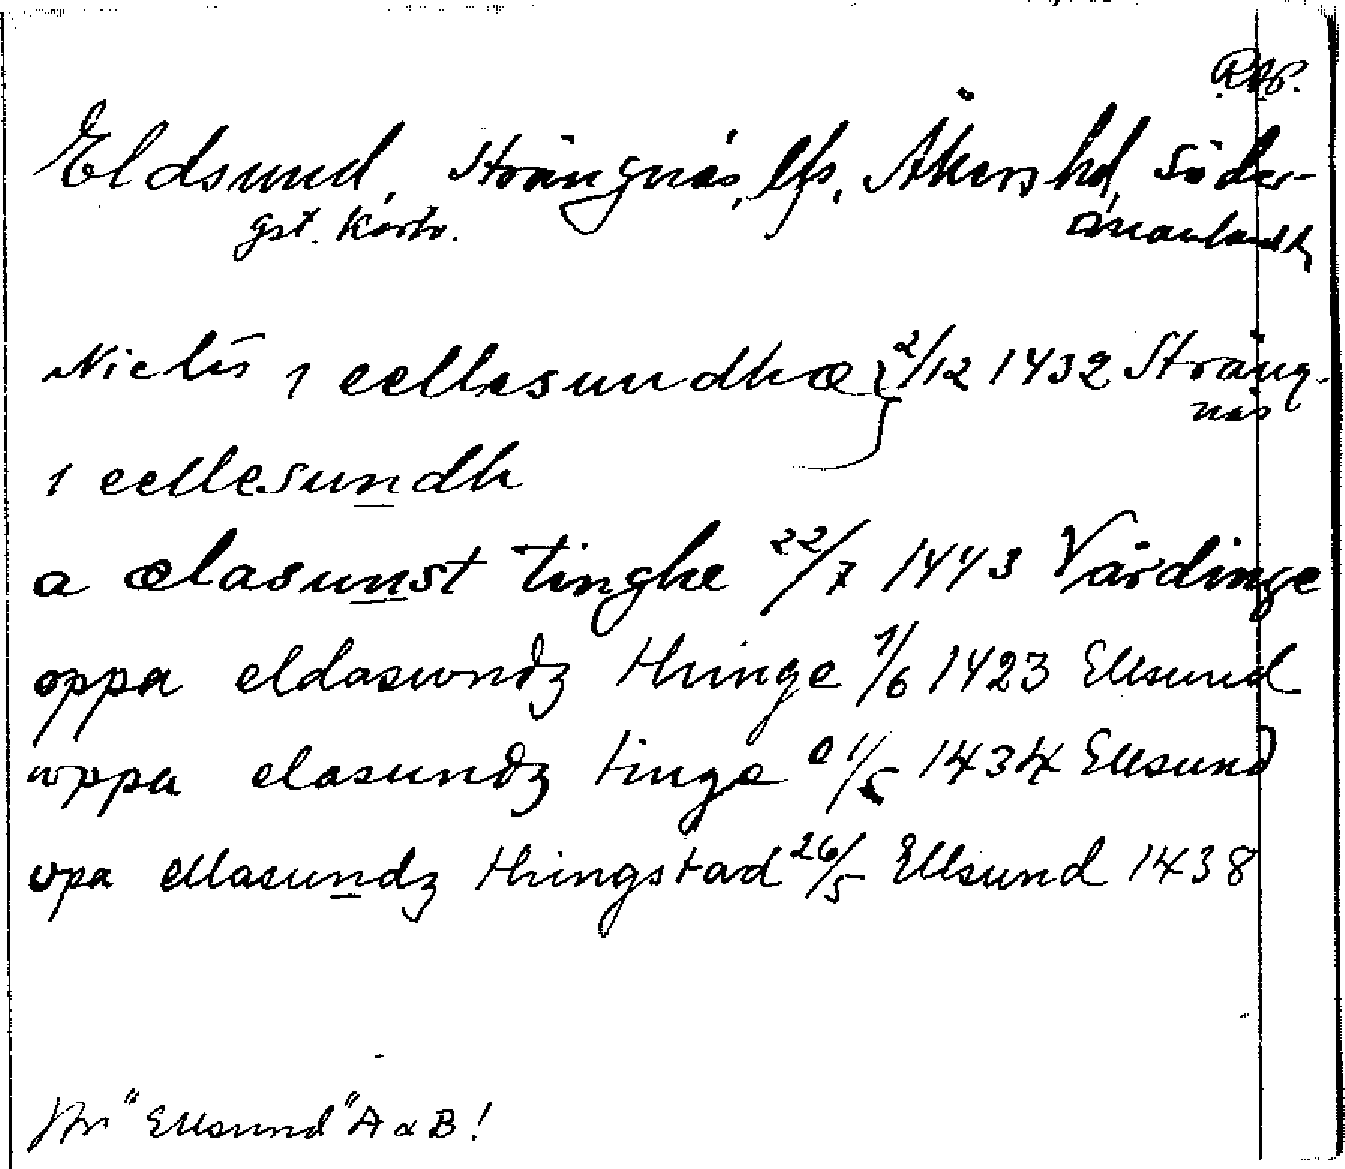 RAp.
Eldsund, Strängnäs, lfs, Åkers hd, Söder-
gst. kartv. manland
Niclis i eellesundhæ 2/12 1432 Sträng-
näs
i eellesundh
a ælasunst tinghe 22/7 1443 Vårdinge
oppa eldaswndz thinge 1/6 1423 Ellsund
wppa elasundz tinge 1/5 1434 Ellsund
vpa ellasundz thingstad 26/5 Ellsund 1438
Jfr "Ellsund" A o B!